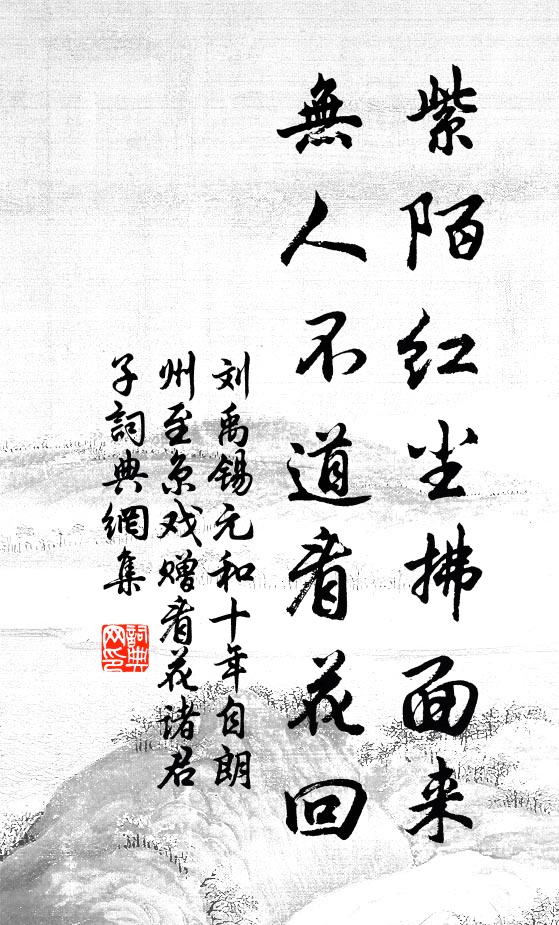 紫陌红尘拂面来
無人不道看花回
刘禹锡元和十年自朗
州至京戏赠看花诸君
子詞典網集
詞典网印